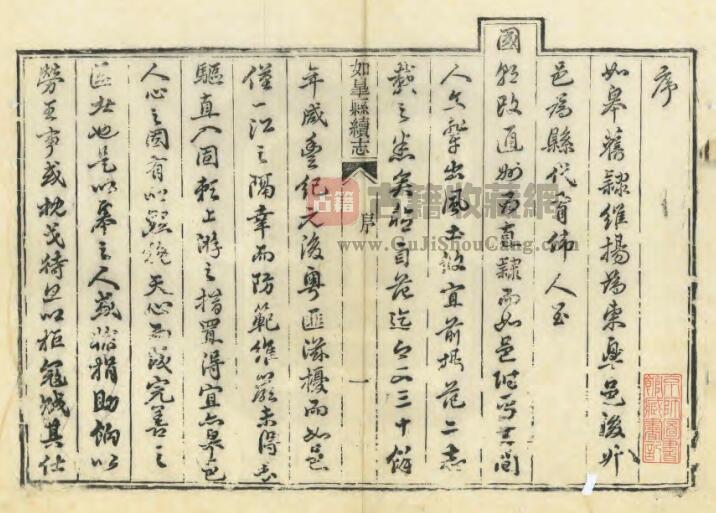 序
如皋舊隸維揚為東興邑後升
邑為縣代有人至
國朝改通州為直隸而如邑附焉其間
人文出風土攸宜前楊范二志
載之悉矣迄今又三十餘
如皋縣續志
序
一
年咸豐紀元後粵匪滋擾而如邑
僅一江之隔幸而防範維嚴未得長
驅直入固賴上游之措置得宜亦皋邑
人心之固有以默挽天心而成完善之
區者也是以之人或輸捐助餉以
勞王事或枕戈待旦以拒寇賊其仕
京師圖書館藏書印
古籍收藏網
www.GuJiShouCang.com